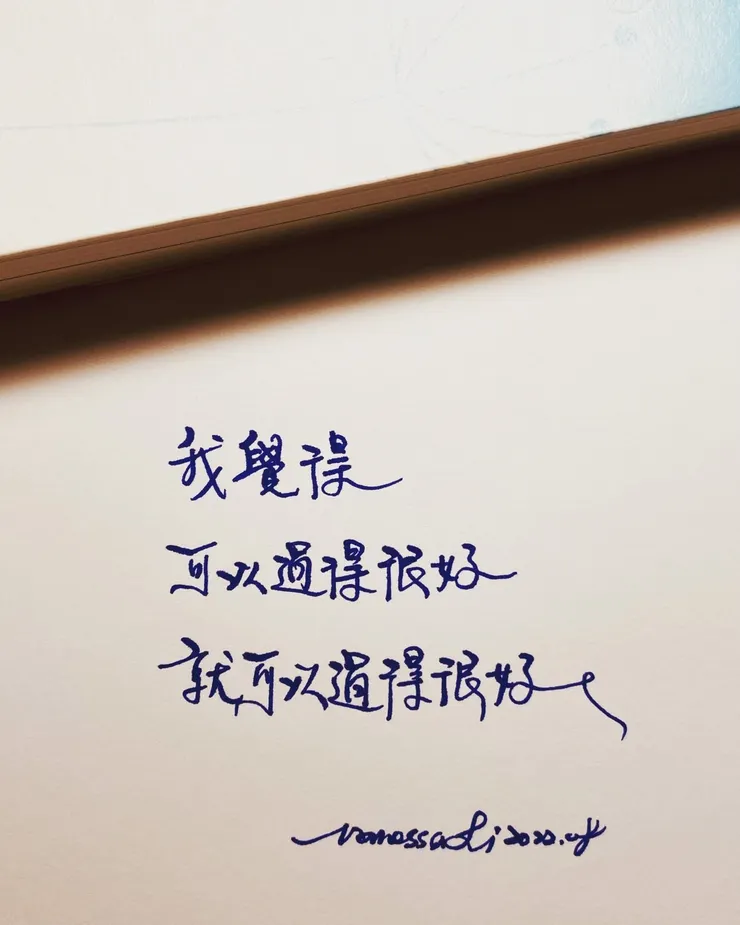 我覺得
可以過得很好
就可以過得很好
vanessaoli 2022.